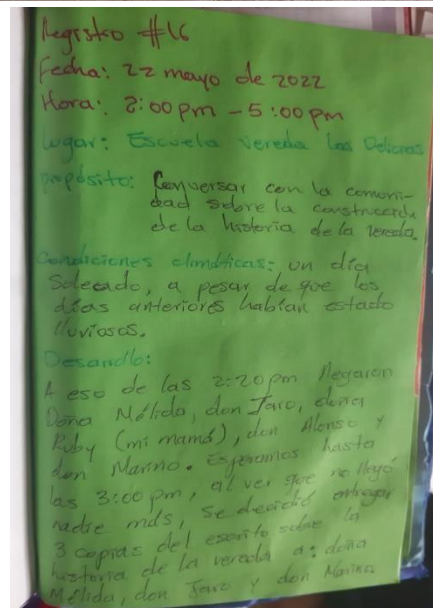 Registro #16
Fecha: 22 mayo de 2022
Hora: 2:00 pm - 5:00 pm
Lugar: Escuela vereda Las Delicias
propósito: Conversar con la comuni-
dad sobre la construcción
de la historia de la vereda.
Condiciones climáticas: un día
soleado, a pesar de que los
días anteriores habían estado
lluviosos.
Desarrollo:
A eso de las 2:20 pm llegaron
Doña Mélida, don Jaro, doña
Ruby (mi mamá), don Alonso y
don Marino. Esperamos hasta
las 3:00 pm, al ver que no llegó
nadie más, se decidió entregar
3 copias del escrito sobre la
historia de la vereda a: doña
Mélida, don Jaro y don Marino